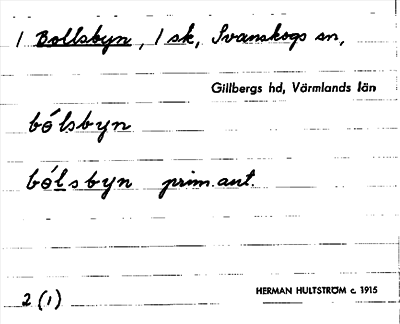 1 Bollsbyn, 1 sk, Svanskogs sn,
Gillbergs hd, Värmlands län
bólsbyn
bólsbyn prim. ant.
2 (1)
HERMAN HULTSTRÖM c. 1915